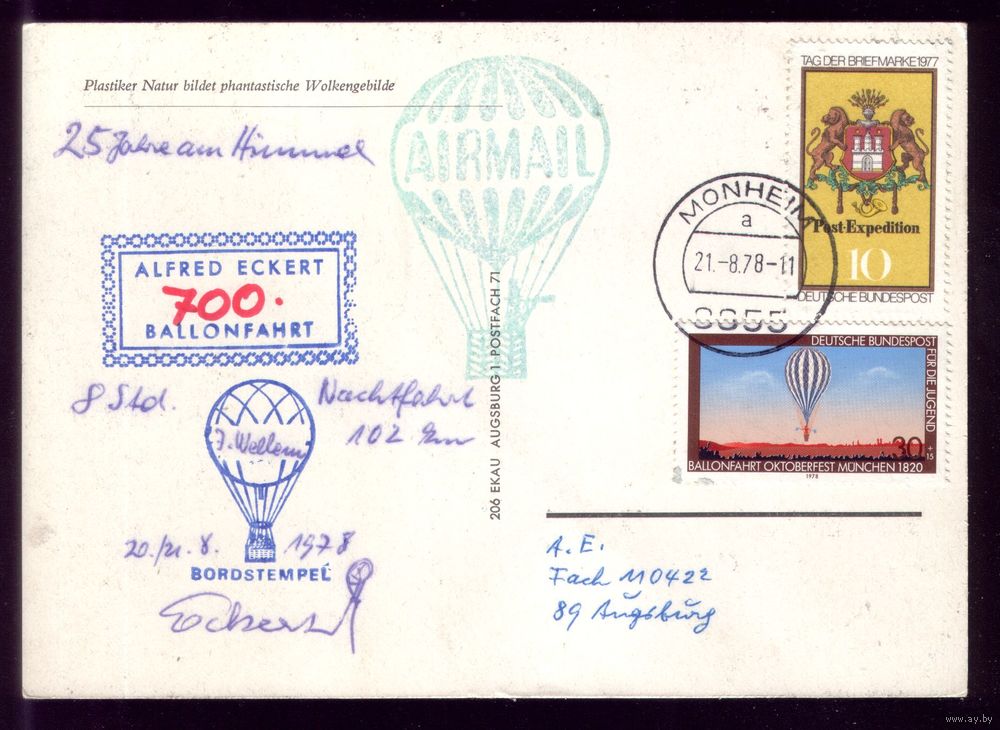 Plastiker Natur bildet phantastische Wolkengebilde
25 Jahre am Himmel
AIRMAIL
ALFRED ECKERT
700.
BALLONFAHRT
8 Std. Nachtfahrt
102 km
J. Wellem
20./21. 8. 1978
BORDSTEMPEL
Eckert
206 EKAU AUGSBURG 1 POSTFACH 71
TAG DER BRIEFMARKE 1977
Post-Expedition
10
DEUTSCHE BUNDESPOST
MONHEIM
a
21.-8.78-11
DEUTSCHE BUNDESPOST
FÜR DIE JUGEND
30
+15
BALLONFAHRT OKTOBERFEST MÜNCHEN 1820
1978
A. E.
Fach 110422
89 Augsburg
www.ay.by